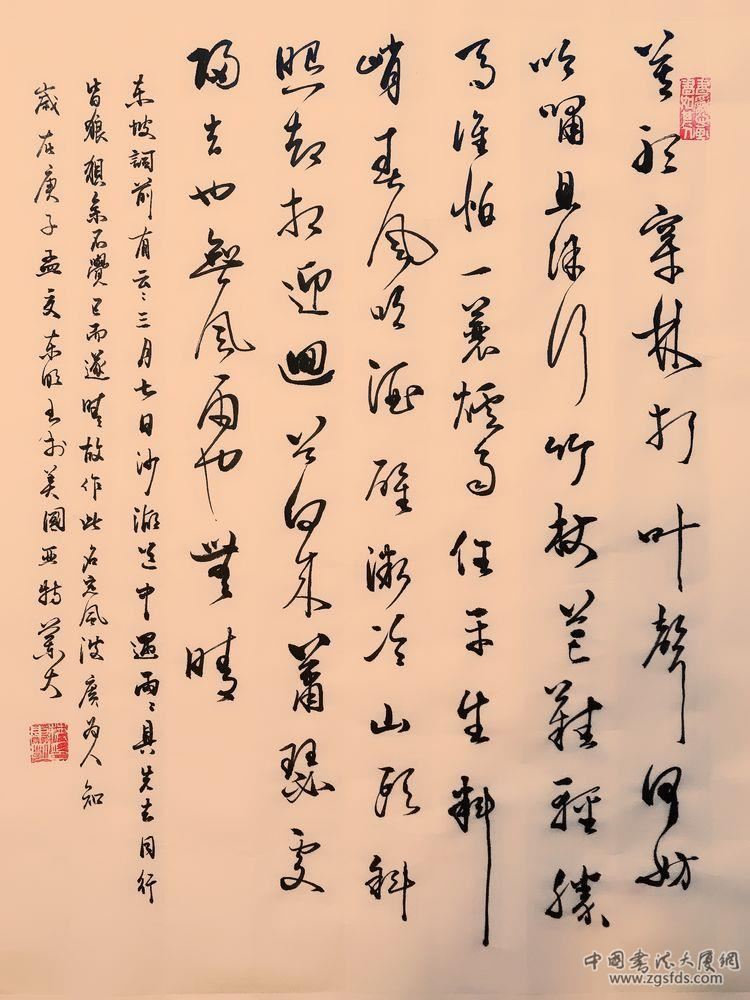 莫聽穿林打叶聲何妨
吟嘯且徐行竹杖芒鞋輕勝
馬誰怕一蓑煙雨任平生料
峭春風吹酒醒微冷山頭斜
照却相迎迴首向來蕭瑟處
歸去也無風雨也無晴
东坡詞前有云三月七日沙湖道中遇雨〻具先去同行
皆狼狽余不覺已而遂晴故作此名定風波廣为人知
歲在庚子孟夏东明书於美國亚特蘭大
中国书法大厦網
www.zgsfds.com